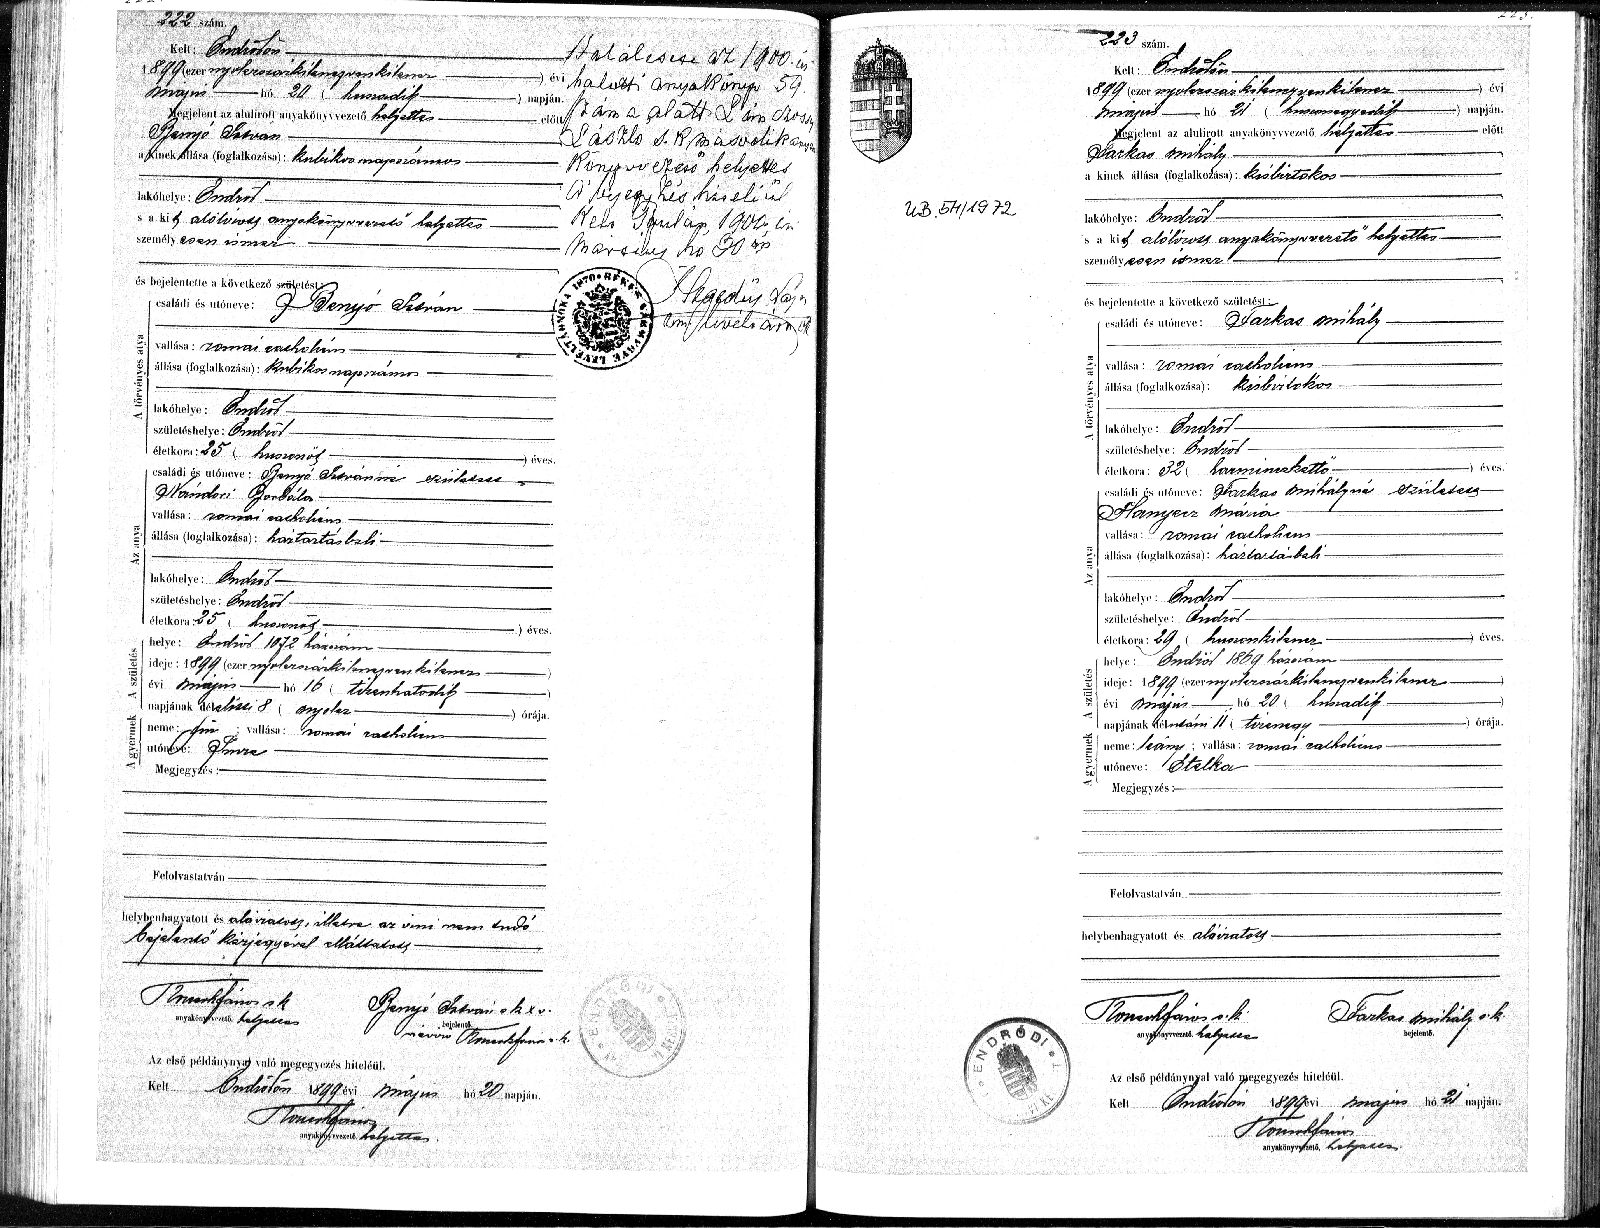 222 szám.
Kelt: Endrődön
1899 (ezer nyolczszázkilenczvenkilencz ) évi
május hó 20 ( huszadik ) napján.
Megjelent az alulirott anyakönyvvezető helyettes előtt
Benyó István
a kinek állása (foglalkozása): kubikos napszámos
lakóhelye: Endrőd
s a kit alólirott anyakönyvvezető helyettes
személyesen ismer
és bejelentette a következő születést:
A törvényes atya
családi és utóneve: Benyó István
vallása: romai catholicus
állása (foglalkozása): kubikos napszámos
lakóhelye: Endrőd
születéshelye: Endrőd
életkora: 25 ( huszonöt ) éves.
Az anya
családi és utóneve: Benyó Istvánné született
Nándori Borbála
vallása: romai catholicus
állása (foglalkozása): háztartásbeli
lakóhelye: Endrőd
születéshelye: Endrőd
életkora: 25 ( huszonöt ) éves.
A születés
helye: Endrőd 1072 házszám
ideje: 1899 (ezer nyolczszázkilenczvenkilencz )
évi május hó 16 ( tizenhatodik )
napjának délelőtti 8 ( nyolcz ) órája.
A gyermek
neme: fiu ; vallása: romai catholicus
utóneve: Imre
Megjegyzés:
Felolvastatván
helybenhagyatott és aláiratott, illetve az irni nem tudó
bejelentő kézjegyével elláttatott
János s.k.
anyakönyvvezető. helyettes
Benyó István s.k. x v.
bejelentő.
névíró János s.k.
Az első példánynyal való megegyezés hiteléül.
Kelt Endrődön 1899 évi május hó 20 napján.
János
anyakönyvvezető. helyettes.
Halálesete az 1900. évi
halotti anyakönyv 59.
szám alatt
László s.k. másodlik anya
könyvvezető helyettes
A bejegyzés hiteléül
Kelt Gyulán, 1900. évi
március hó 30 án
Hegedüs
levéltárnok
223 szám.
Kelt: Endrődön
1899 (ezer nyolczszázkilenczvenkilencz ) évi
május hó 21 ( huszonegyedik ) napján.
Megjelent az alulirott anyakönyvvezető helyettes előtt
Farkas Mihály
a kinek állása (foglalkozása): kisbirtokos
lakóhelye: Endrőd
s a kit alólirott anyakönyvvezető helyettes
személyesen ismer
és bejelentette a következő születést:
A törvényes atya
családi és utóneve: Farkas Mihály
vallása: romai catholicus
állása (foglalkozása): kisbirtokos
lakóhelye: Endrőd
születéshelye: Endrőd
életkora: 32 ( harminczkettő ) éves.
Az anya
családi és utóneve: Farkas Mihályné született
Hanyecz Mária
vallása: romai catholicus
állása (foglalkozása): háztartásbeli
lakóhelye: Endrőd
születéshelye: Endrőd
életkora: 29 ( huszonkilencz ) éves.
A születés
helye: Endrőd 1869 házszám
ideje: 1899 (ezer nyolczszázkilenczvenkilencz )
évi május hó 20 ( huszadik )
napjának délutáni 11 ( tizenegy ) órája.
A gyermek
neme: leány ; vallása: romai catholicus
utóneve: Etelka
Megjegyzés:
Felolvastatván
helybenhagyatott és aláiratott
János s.k.
anyakönyvvezető. helyettes
Farkas Mihály s.k.
bejelentő.
ENDRŐDI
Az első példánynyal való megegyezés hiteléül.
Kelt Endrődön 1899 évi május hó 21 napján.
János
anyakönyvvezető, helyettes.
UB. 54/1972